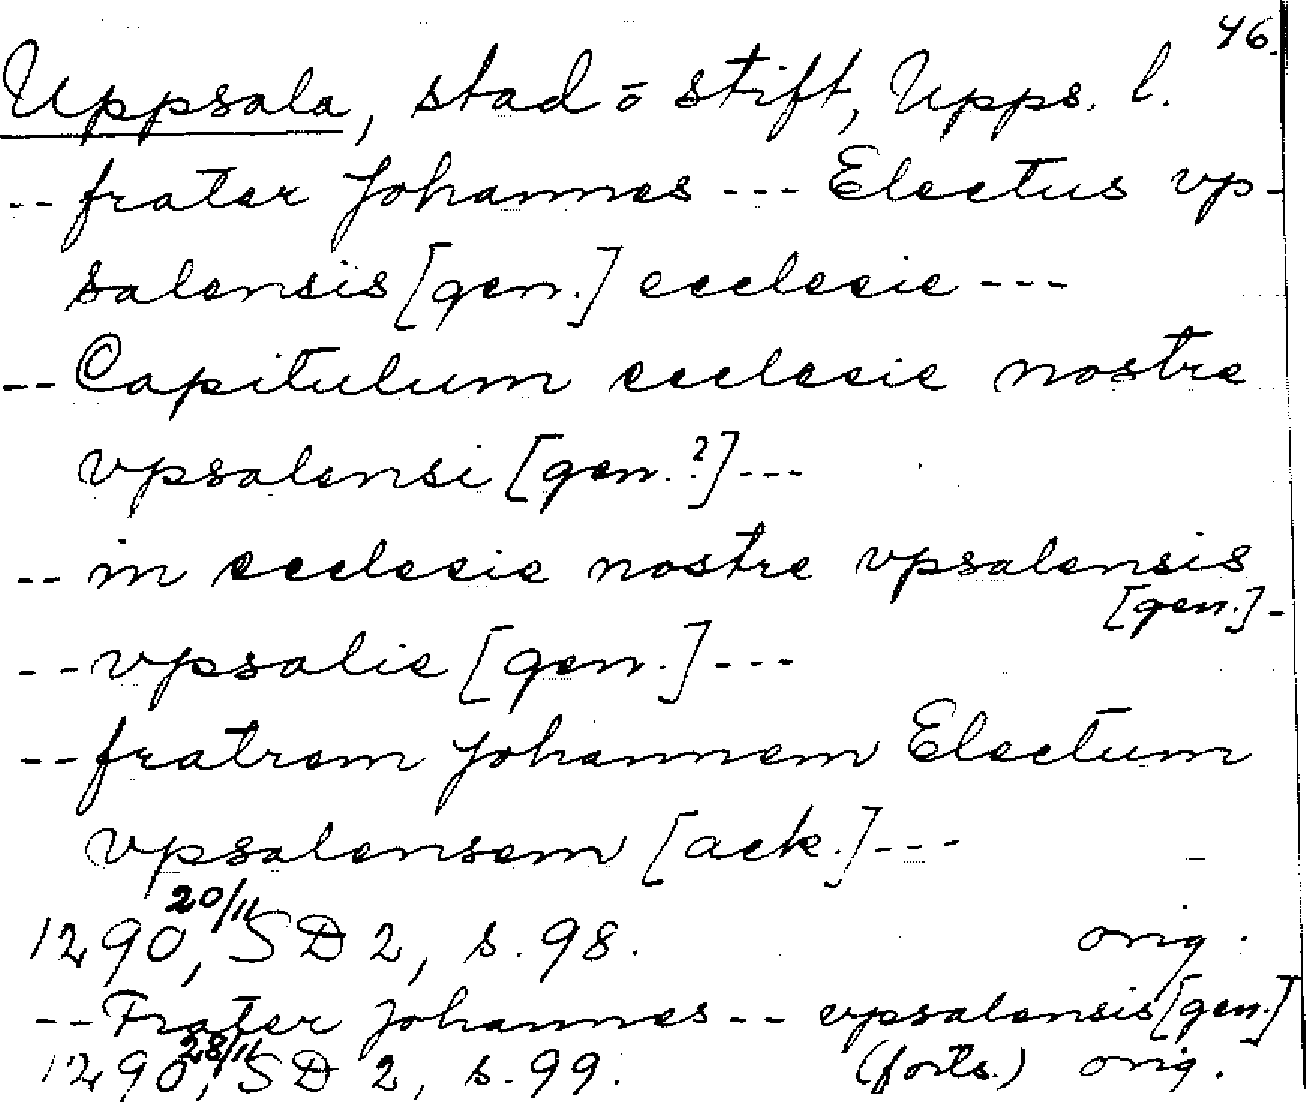 46.
Uppsala, stad o stift, Upps. l.
-- frater Johannes --- Electus vp-
salensis [gen.] ecclesie ---
-- Capitulum ecclesie nostre
vpsalensi [gen.?] ---
-- in ecclesie nostre vpsalensis
[gen.] -
-- vpsalie [gen.] ---
-- fratrem Johannem Electum
vpsalensem [ack.] ---
1290 20/11, SD 2, s. 98. orig.
-- Frater Johannes -- vpsalensis [gen.]
1290 28/11, SD 2, s. 99. (forts.) orig.